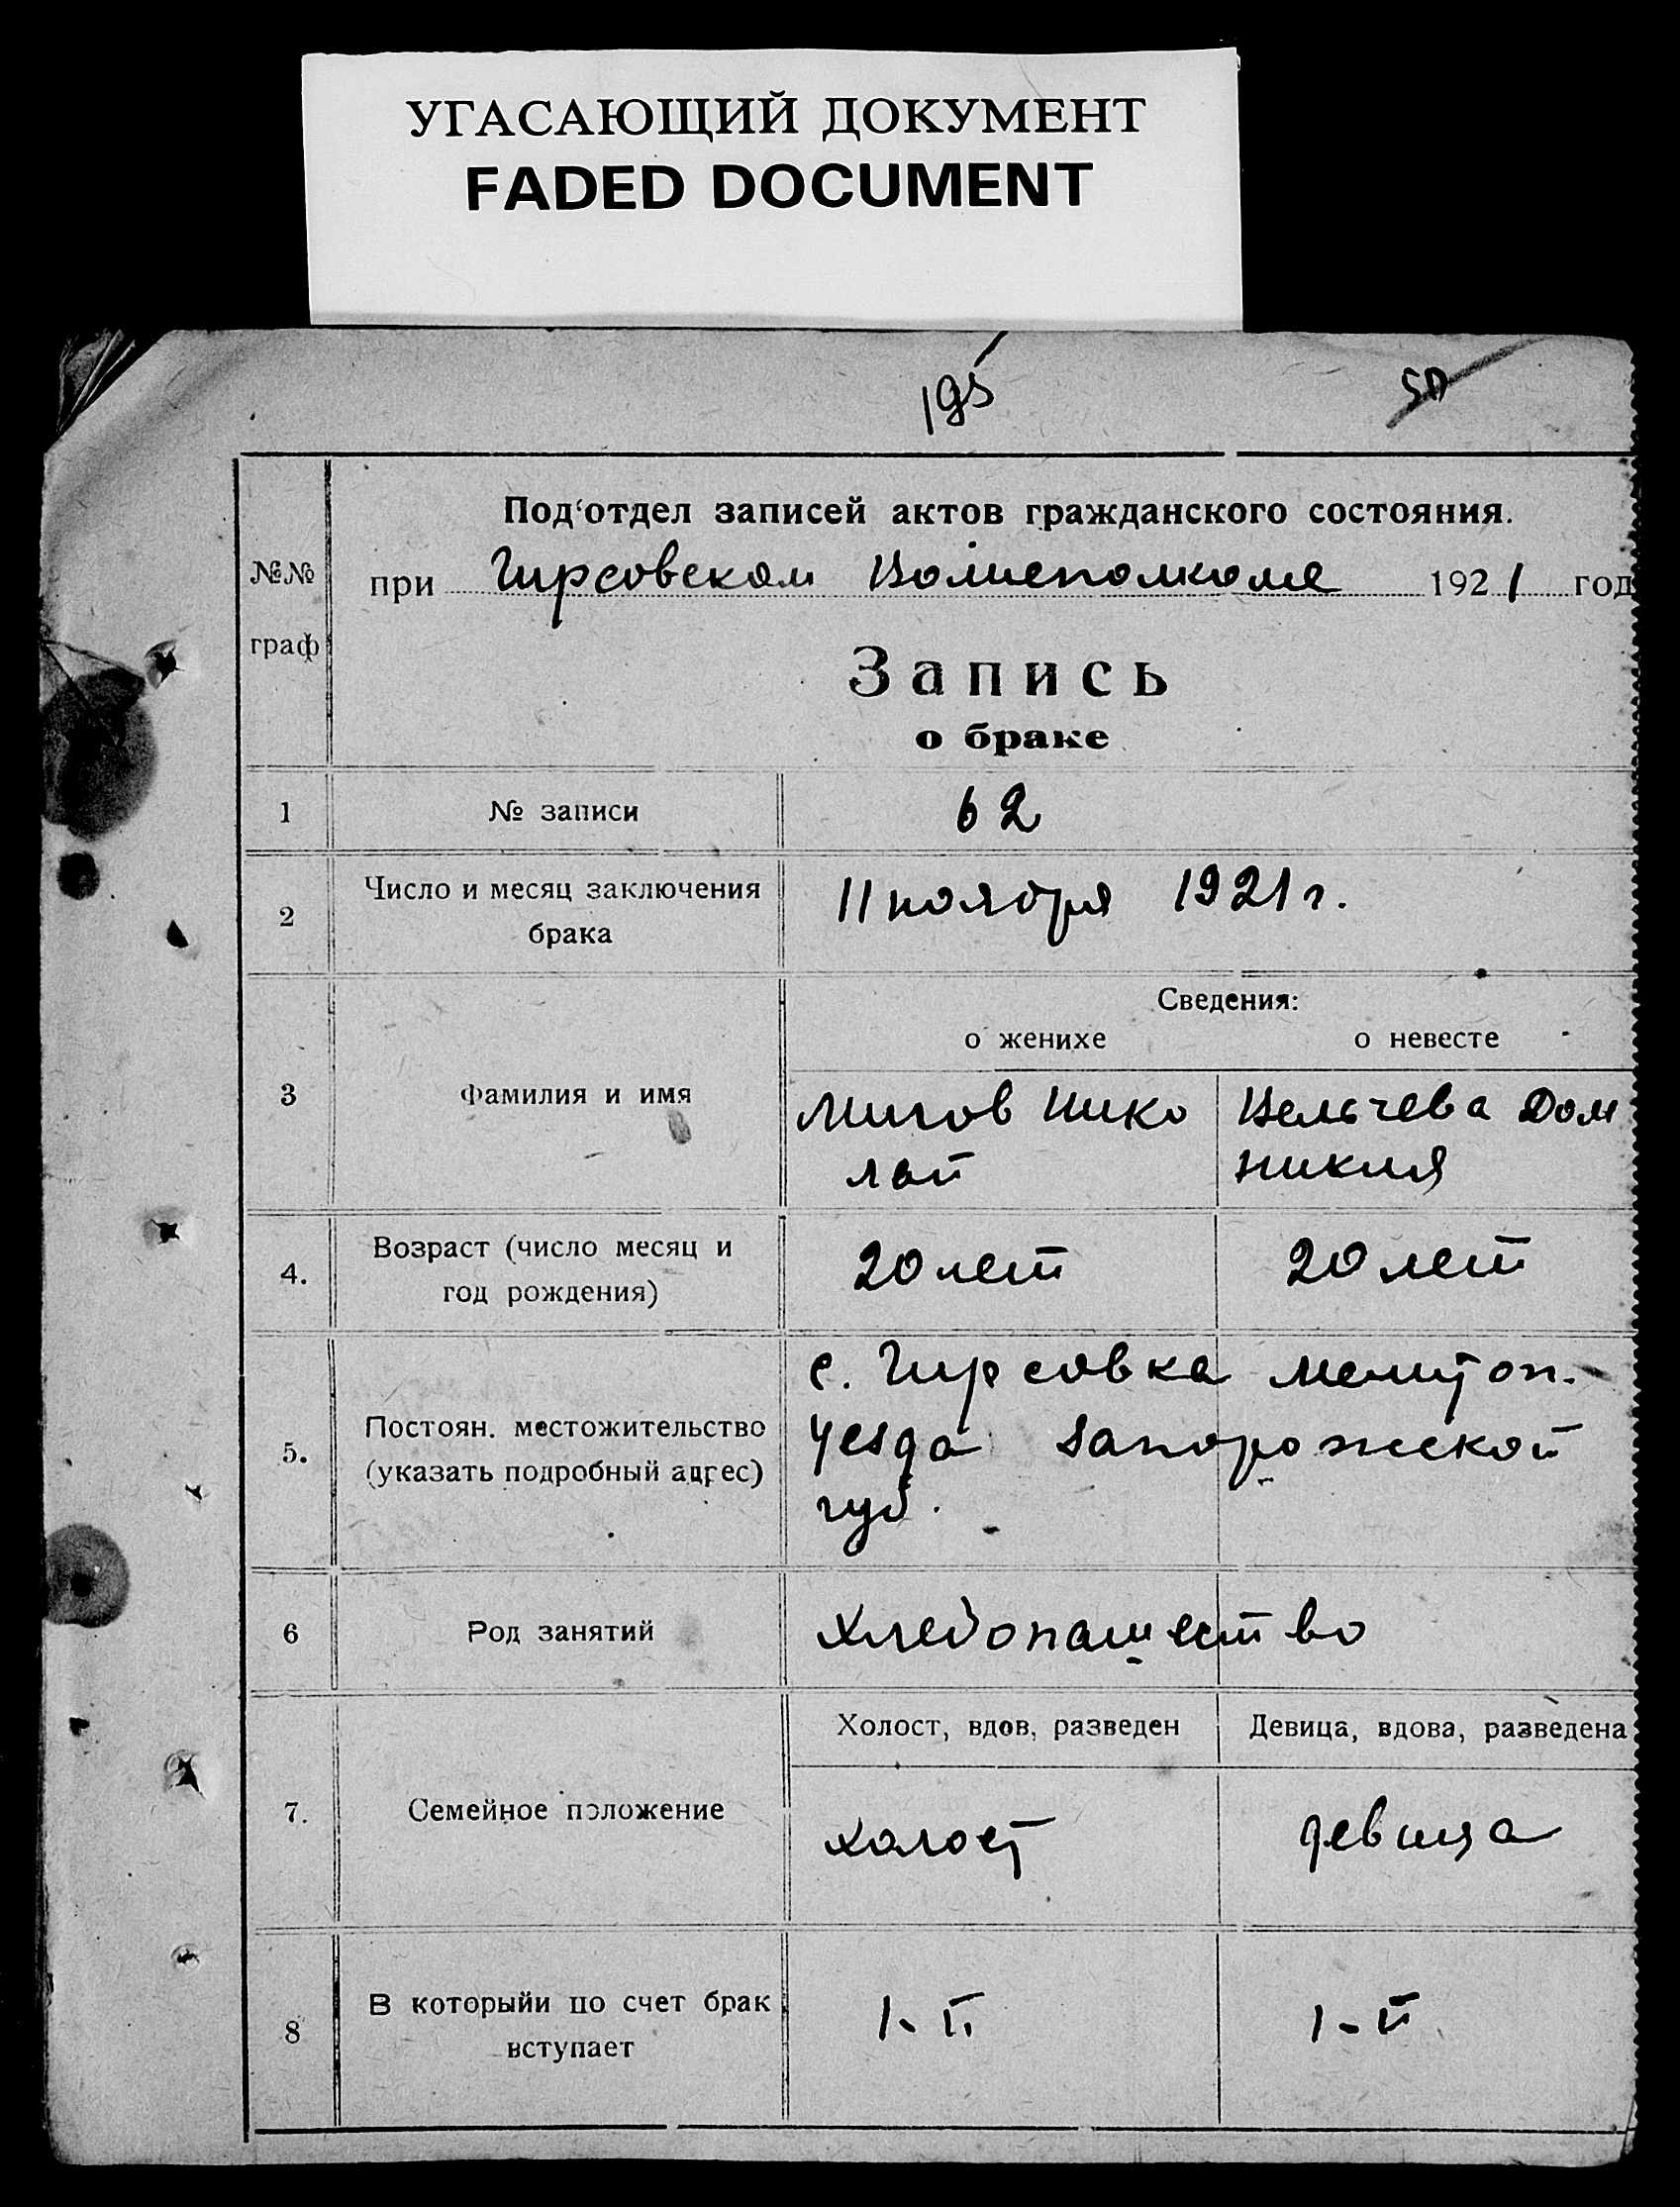 УГАСАЮЩИЙ ДОКУМЕНТ
FADED DOCUMENT
195
50
Под'отдел записей актов гражданского состояния.
№№
граф
при Гирсовском Волисполкоме 1921 год
Запись
о браке
1 № записи 62
2 Число и месяц заключения
брака
11 ноября 1921 г.
Сведения:
о женихе о невесте
3 Фамилия и имя
Митов Нико
лай
Вельчева Дом
никия
4. Возраст (число месяц и
год рождения)
20 лет 20 лет
5. Постоян. местожительство
(указать подробный адрес)
с. Гирсовка Мелитоп.
уезда Запорожской
губ.
6 Род занятий хлебопашество
Холост, вдов, разведен Девица, вдова, разведена
7. Семейное положение
холост девица
8 В которыйи по счет брак
вступает
1-й 1-й